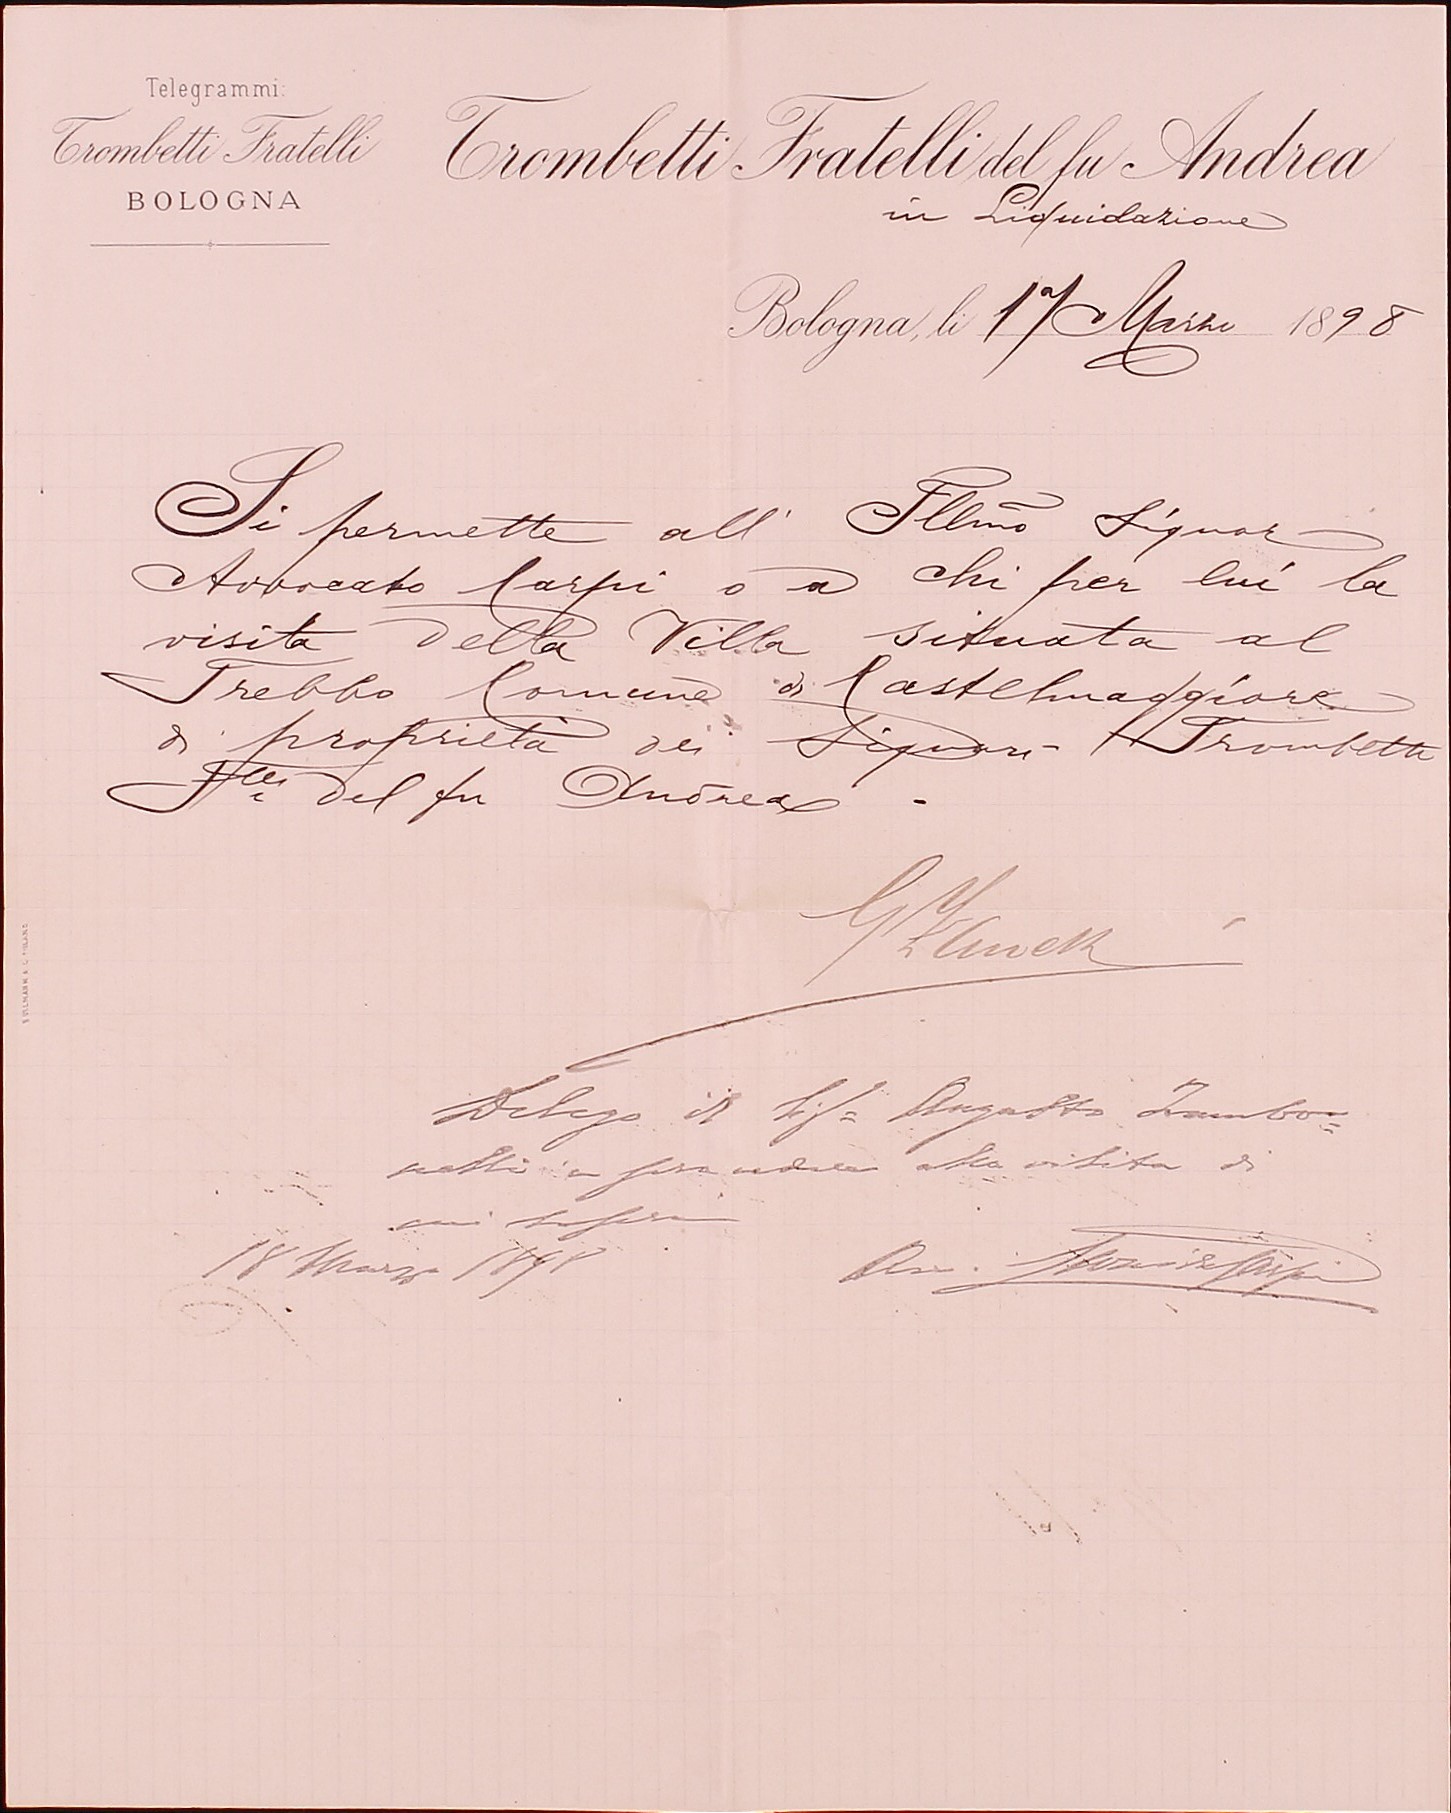 Telegrammi:
Trombetti Fratelli
BOLOGNA
Trombetti Fratelli del fu Andrea
in Liquidazione
Bologna, li 17 Marzo 1898
Si permette all' Illmo Signor
Avvocato Carpi o a chi per lui la
visita della Villa situata al
Trebbo Comune di Castelmaggiore
di proprietà dei Signori Trombetti
F.lli del fu Andrea.
Delego il Sig. Augusto Zambo=
nelli a procedere alla visita di
cui sopra
18 Marzo 1898
Avv. Carpi